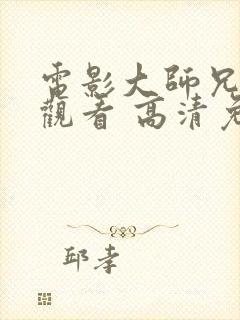 電影大師兄
觀看 高清
邱李